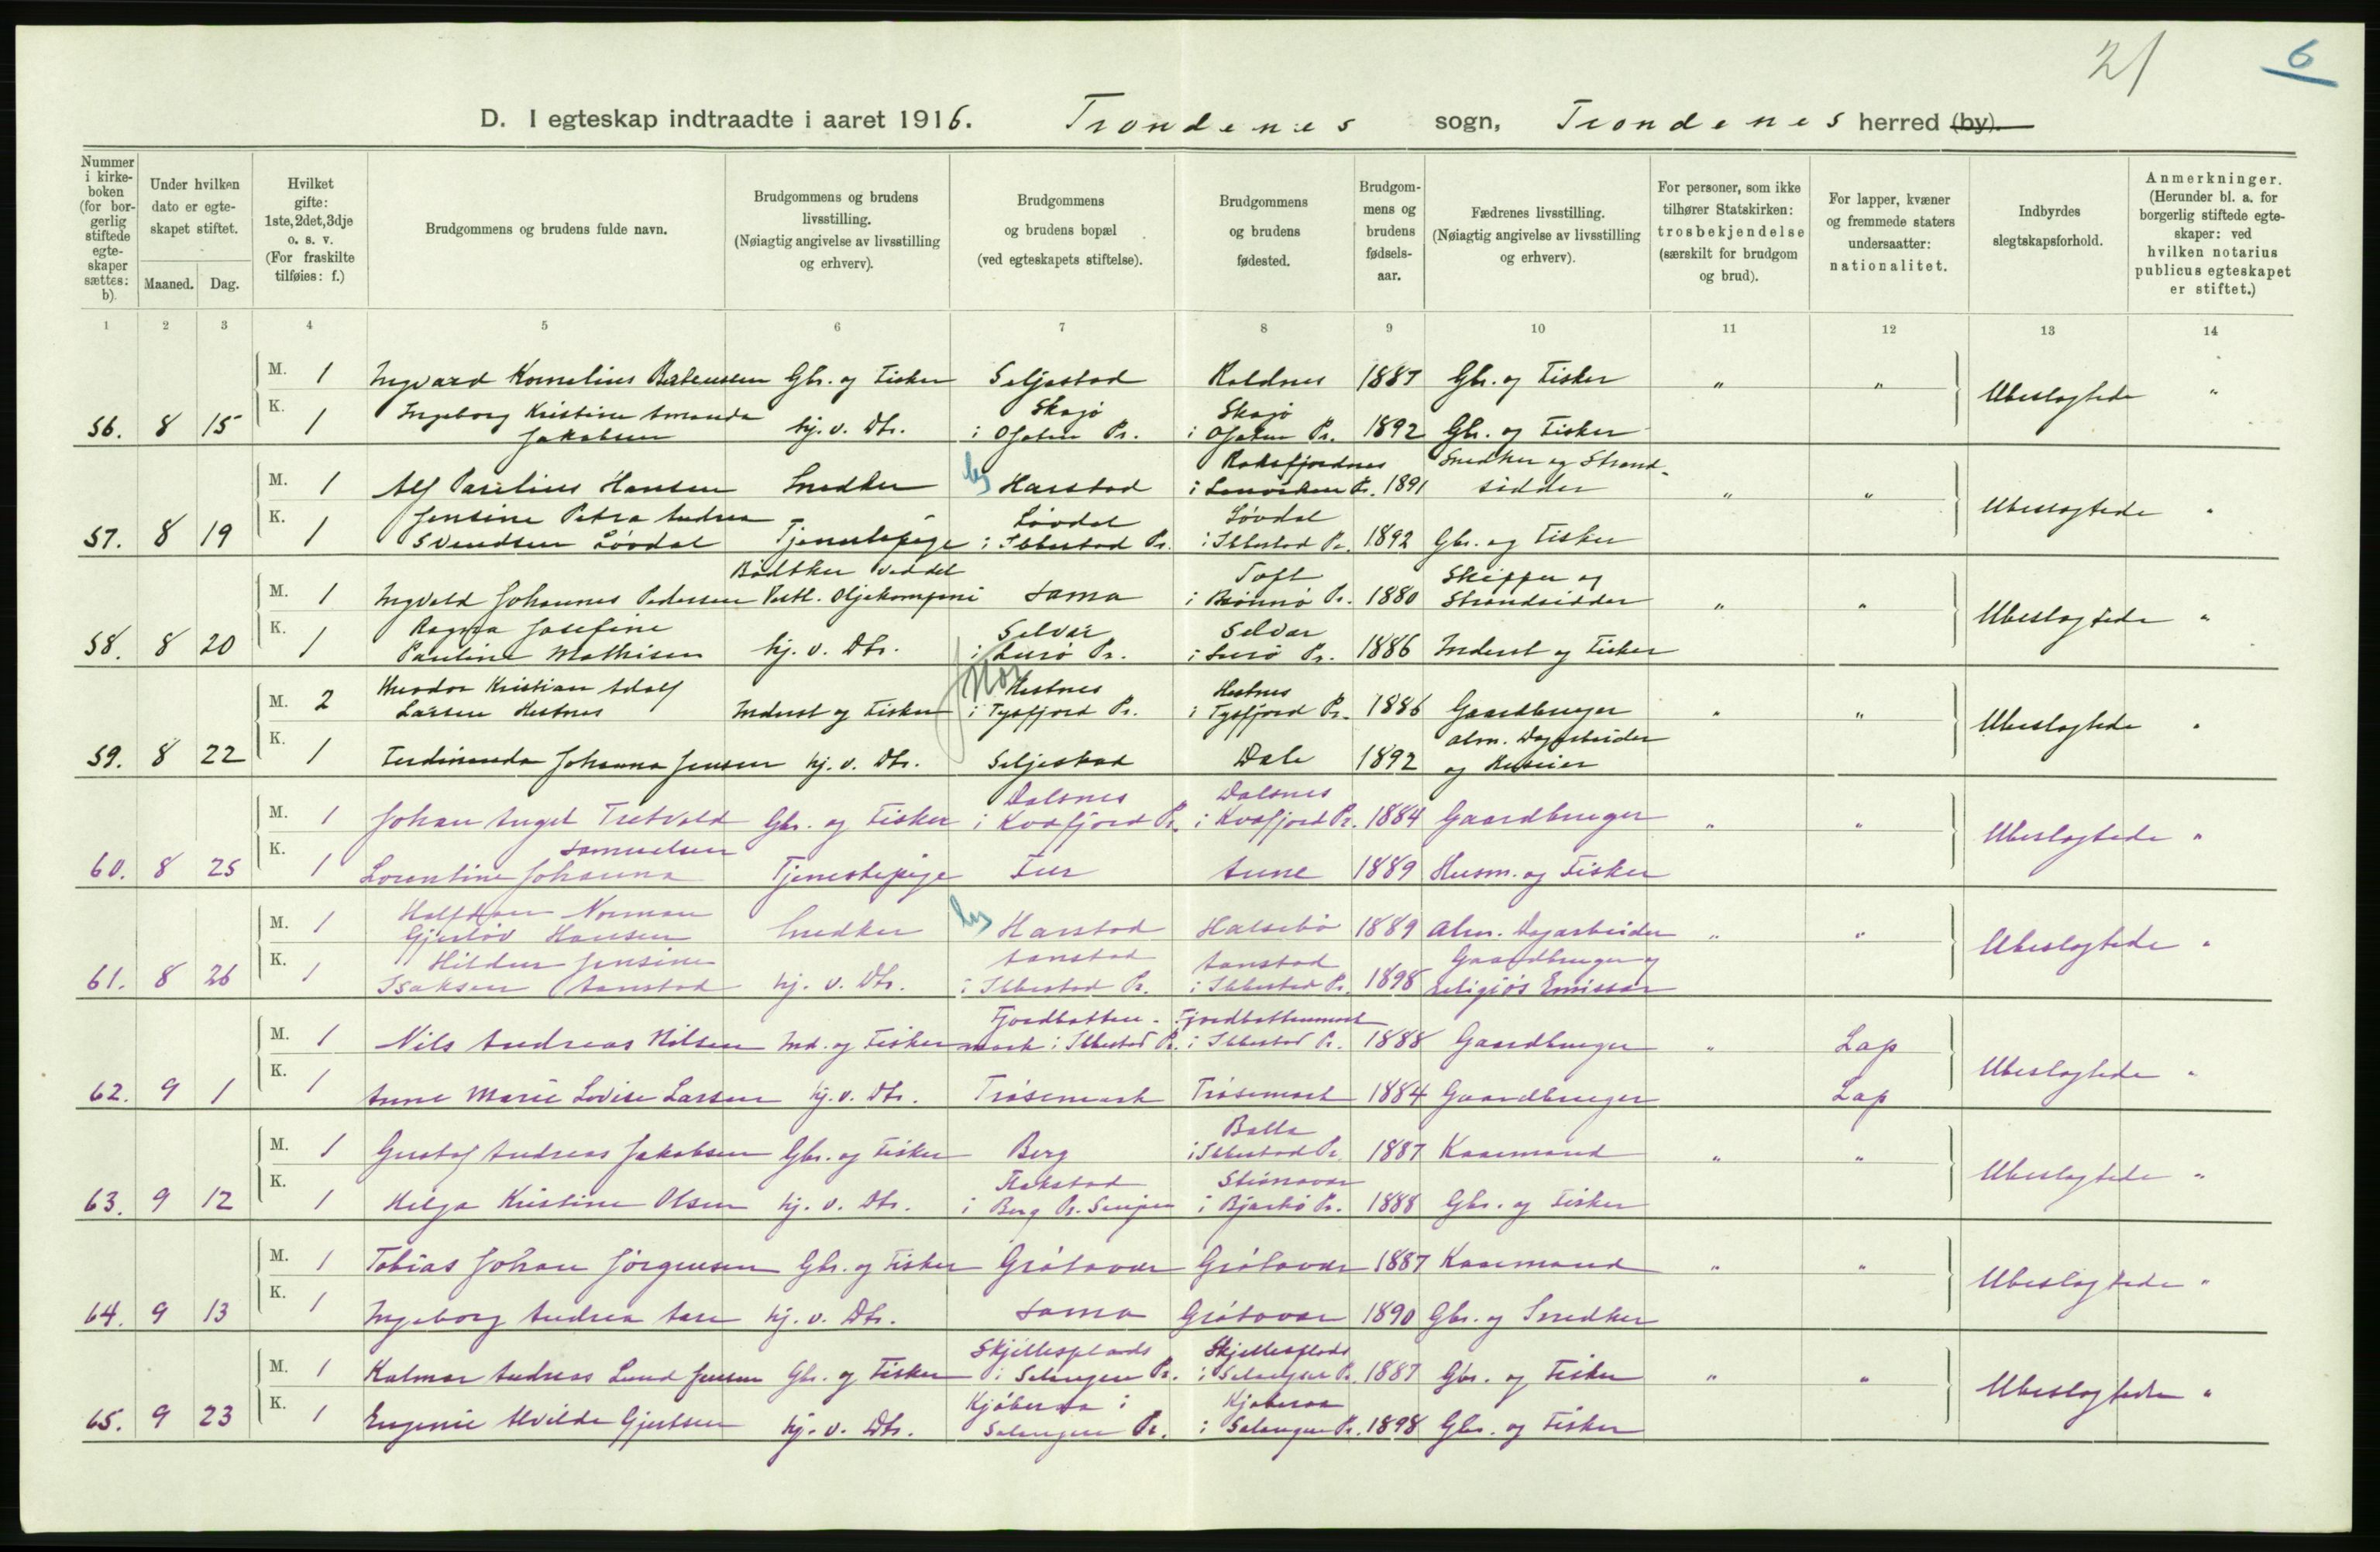 21
6
D. I egteskap indtraadte i aaret 1916. Trondenes sogn, Trondenes herred (by).
Nummer i kirke-boken (for bor-gerlig stiftede egte-skaper sættes: b).
Under hvilken dato er egte-skapet stiftet.
Maaned. Dag.
Hvilket gifte: 1ste, 2det, 3dje o. s. v. (For fraskilte tilføies: f.)
Brudgommens og brudens fulde navn.
Brudgommens og brudens livsstilling. (Nøiagtig angivelse av livsstilling og erhverv).
Brudgommens og brudens bopæl (ved egteskapets stiftelse).
Brudgommens og brudens fødested.
Brudgom-mens og brudens fødsels-aar.
Fædrenes livsstilling. (Nøiagtig angivelse av livsstilling og erhverv).
For personer, som ikke tilhører Statskirken: trosbekjendelse (særskilt for brudgom og brud).
For lapper, kvæner og fremmede staters undersaatter: nationalitet.
Indbyrdes slegtskapsforhold.
Anmerkninger. (Herunder bl. a. for borgerlig stiftede egte-skaper: ved hvilken notarius publicus egteskapet er stiftet.)
1 2 3 4 5 6 7 8 9 10 11 12 13 14
M. 1 Ingvard Kornelius Gbr. og Fisker Seljestad Roldnes 1887 Gbr. og Fisker " " Ubeslegtede "
56. 8 15 K. 1 Ingeborg Kristine Amanda Jakobsen hj. v. Dtr. Skajø i Ofoten Pr. Skajø i Ofoten Pr. 1892 Gbr. og Fisker
M. 1 Alf Parelius Hansen Snedker by Harstad i Pr. 1891 Snedker og Strand-sidder " " Ubeslegtede "
57. 8 19 K. 1 Jensine Petra Andrea Svendsen Løvdal Tjenestepige Løvdal i Ibbestad Pr. Løvdal i Ibbestad Pr. 1892 Gbr. og Fisker
M. 1 Ingvald Johannes Pedersen Bødtker ved det Vestl. Oljekompani Sama Toft i Brønnø Pr. 1880 Skipper og Strandsidder " " Ubeslegtede "
58. 8 20 K. 1 Ragna Josefine Pauline Mathisen hj. v. Dtr. Selvær i Lurø Pr. Selvær i Lurø Pr. 1886 Inderst og Fisker
M. 2 Theodor Kristian Adolf Larsen Hestnes Inderst og Fisker Hestnes i Tysfjord Pr. Hestnes i Tysfjord Pr. 1886 Gaardbruger " " Ubeslegtede "
59. 8 22 K. 1 Ferdinanda Johanna Jensen hj. v. Dtr. Seljestad Dale 1892 alm. Dagarbeider og Huseier
M. 1 Johan Angel Tretvold Gbr. og Fisker Dalsnes i Kvæfjord Pr. Dalsnes i Kvæfjord Pr. 1884 Gaardbruger " " Ubeslegtede "
60. 8 25 K. 1 Lorentine Johanna Samuelsen Tjenestepige Aune 1889 Husm. og Fisker
M. 1 Halfdan Norman Gjerløv Hansen Snedker by Harstad Halsebø 1889 Alm. Dagarbeider " " Ubeslegtede "
61. 8 26 K. 1 Hildur Jensine Isaksen Aanstad hj. v. Dtr. Aanstad i Ibbestad Pr. Aanstad i Ibbestad Pr. 1898 Gaardbruger og religiøs Emissær
M. 1 Nils Andreas Nilsen Ind. og Fisker Fjordbotten-mark i Ibbestad Pr. Fjordbottenmark i Ibbestad Pr. 1888 Gaardbruger " Lap Ubeslegtede "
62. 9 1 K. 1 Anne Marie Lovise Larsen hj. v. Dtr. Trøsemark Trøsemark 1884 Gaardbruger Lap
M. 1 Gustaf Andreas Jakobsen Gbr. og Fisker Berg Balla i Ibbestad Pr. 1887 Kaarmand " " Ubeslegtede "
63. 9 12 K. 1 Helga Kristine Olsen hj. v. Dtr. Flakstad i Berg Pr. Senjen i Bjarkø Pr. 1888 Gbr. og Fisker
M. 1 Tobias Johan Jørgensen Gbr. og Fisker Grøtavær Grøtavær 1887 Kaarmand " " Ubeslegtede "
64. 9 13 K. 1 Ingeborg Andrea hj. v. Dtr. Sama Grøtavær 1890 Gbr. og Snedker
M. 1 Kalmar Andreas Lund Jensen Gbr. og Fisker Skjellesplads i Salangen Pr. Skjellesplads i Salangen Pr. 1887 Gbr. og Fisker " " Ubeslegtede "
65. 9 23 K. 1 Eugenie Alvilde Gjertsen hj. v. Dtr. Kjøberaa i Salangen Pr. Kjøberaa i Salangen Pr. 1898 Gbr. og Fisker